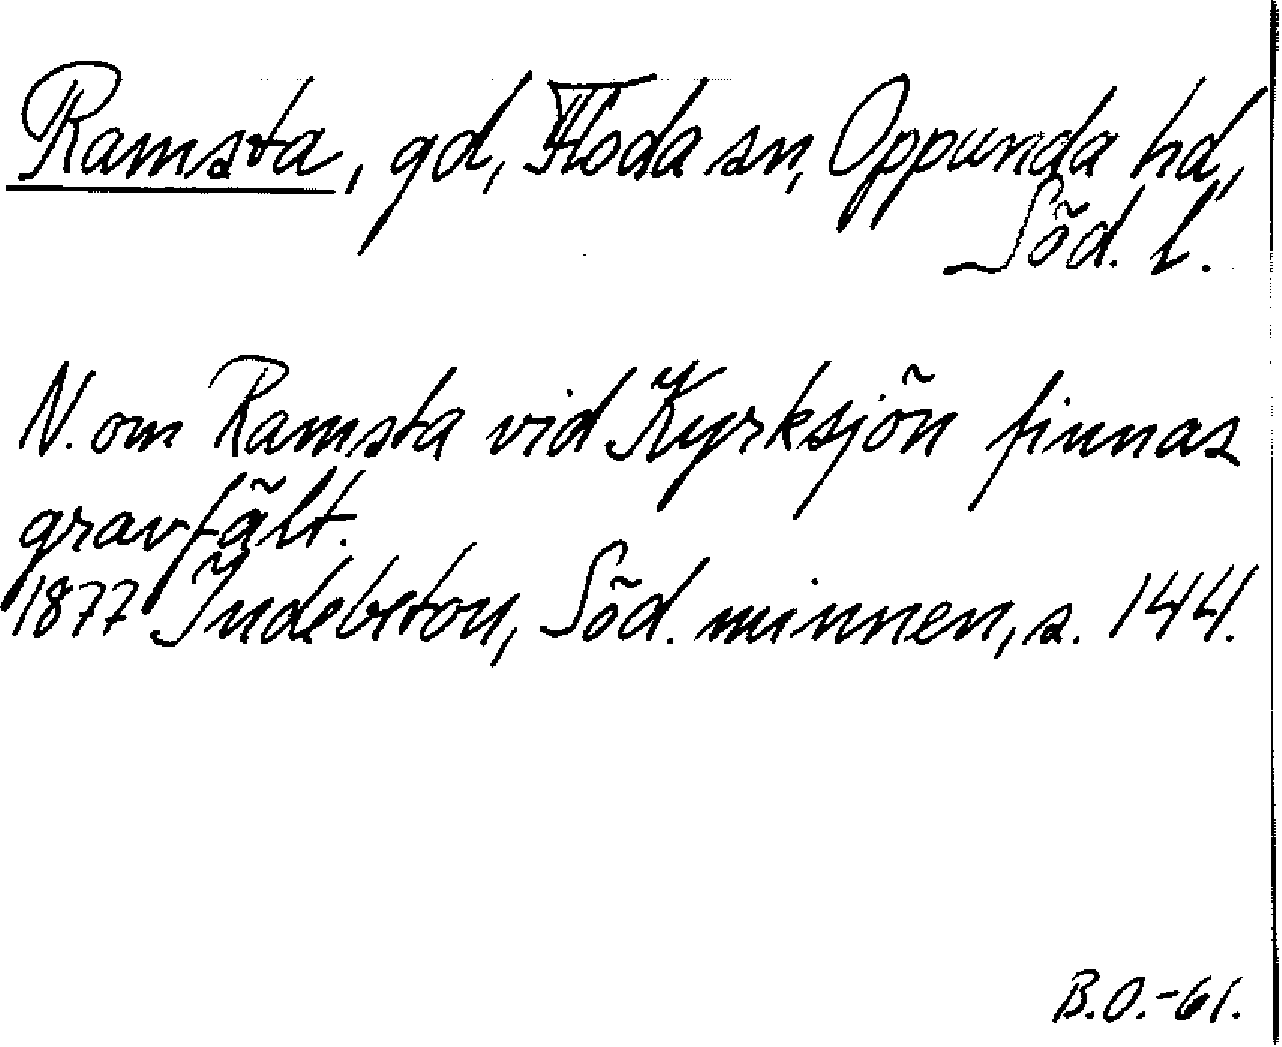 Ramsta, gd, Floda sn, Oppunda hd,
Söd. l.
N. om Ramsta vid Kyrksjön finnas
gravfält.
1877 Indebetou, Söd. minnen, s. 144.
B.O.-61.